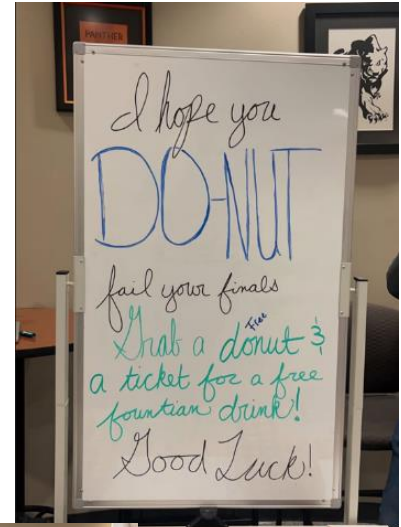 PANTHER
I hope you
DO-NUT
fail your finals
Grab a Free donut &
a ticket for a free
fountian drink!
Good Luck!